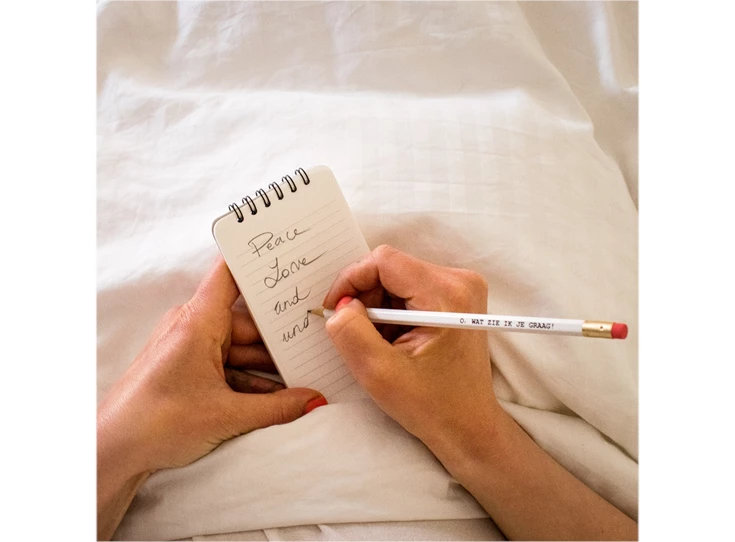 Peace
Love
and
und
O, WAT ZIE IK JE GRAAG!